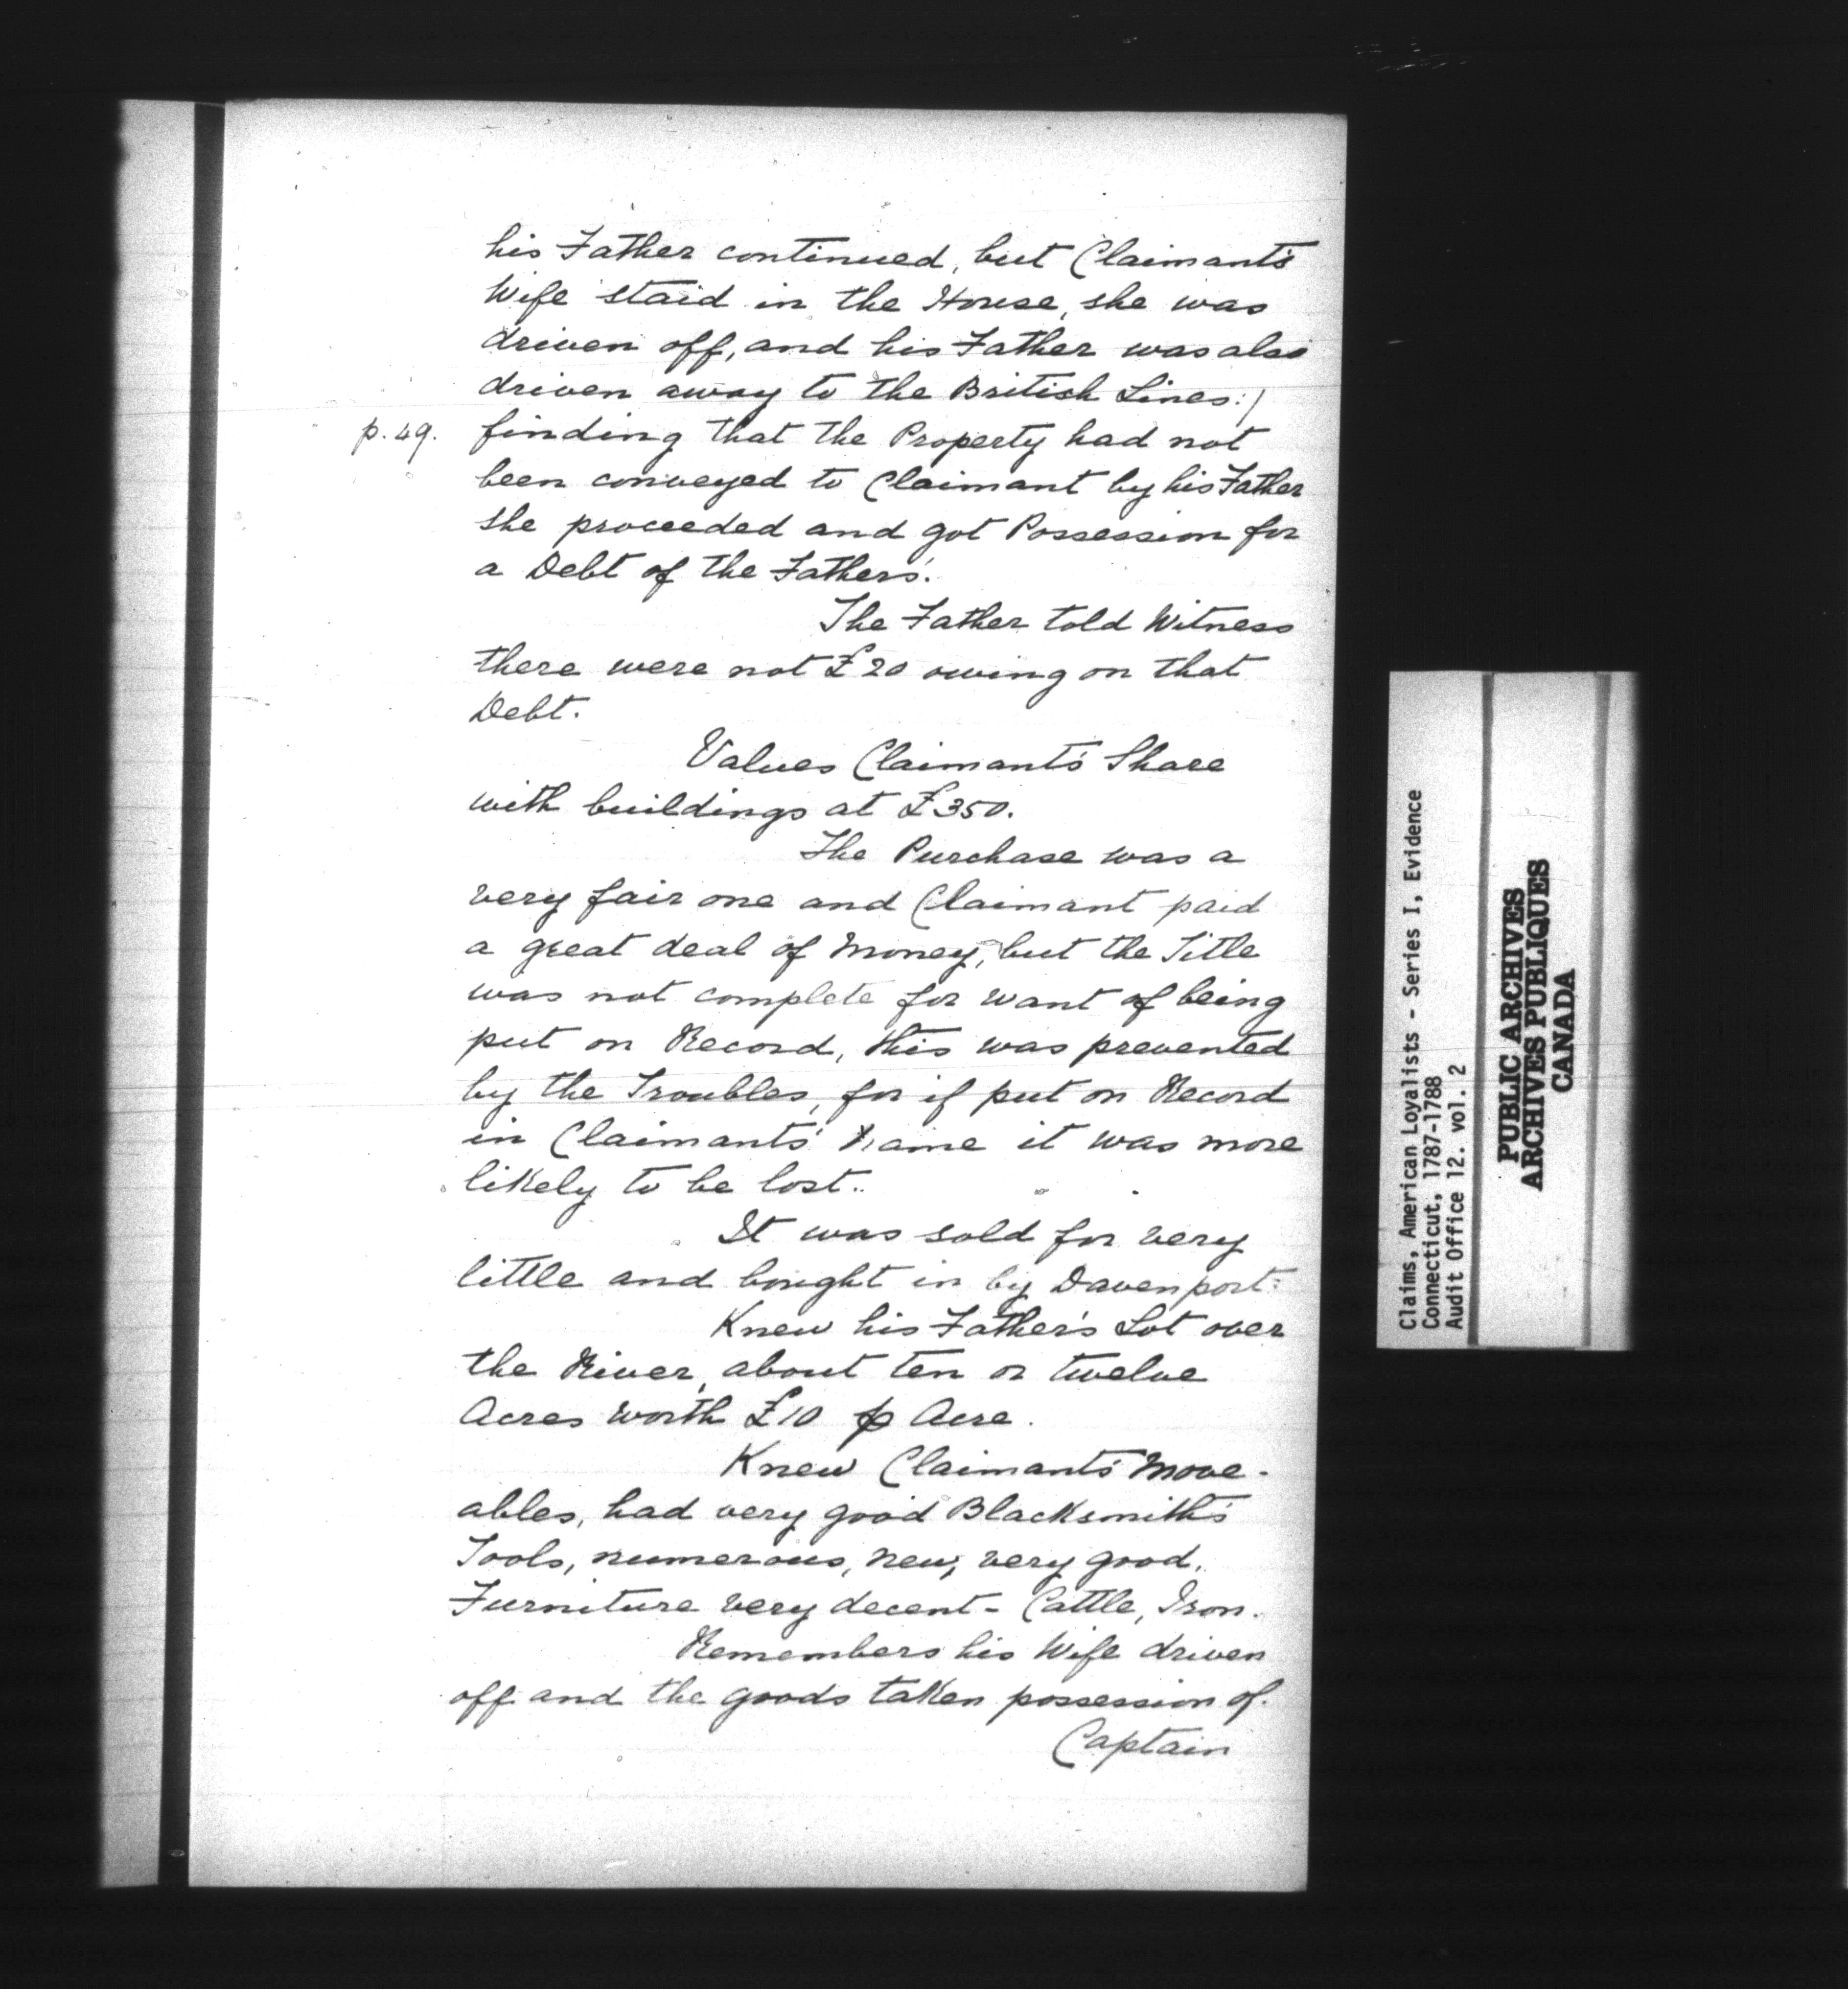 his Father continued, but Claimant's
Wife staid in the House, she was
driven off, and his Father was also
driven away to the British Lines:/
p. 49. finding that the Property had not
been conveyed to Claimant by his Father
she proceeded and got Possession for
a Debt of the Fathers'.
The Father told Witness
there were not £20 owing on that
Debt.
Values Claimant's Share
with buildings at £350.
The Purchase was a
very fair one and Claimant paid
a great deal of Money, but the Title
was not complete for want of being
put on Record, this was prevented
by the Troubles, for if put on Record
in Claimants' Name it was more
likely to be lost.
It was sold for very
little and bought in by Davenport.
Knew his Father's Lot over
the River, about ten or twelve
Acres worth £10 p Acre.
Knew Claimant's Move-
ables, had very good Blacksmith's
Tools, numerous, new, very good.
Furniture very decent - Cattle, Iron.
Remembers his Wife driven
off and the goods taken possession of.
Captain
Claims, American Loyalists - Series I, Evidence
Connecticut, 1787-1788
Audit Office 12. vol. 2
PUBLIC ARCHIVES
ARCHIVES PUBLIQUES
CANADA